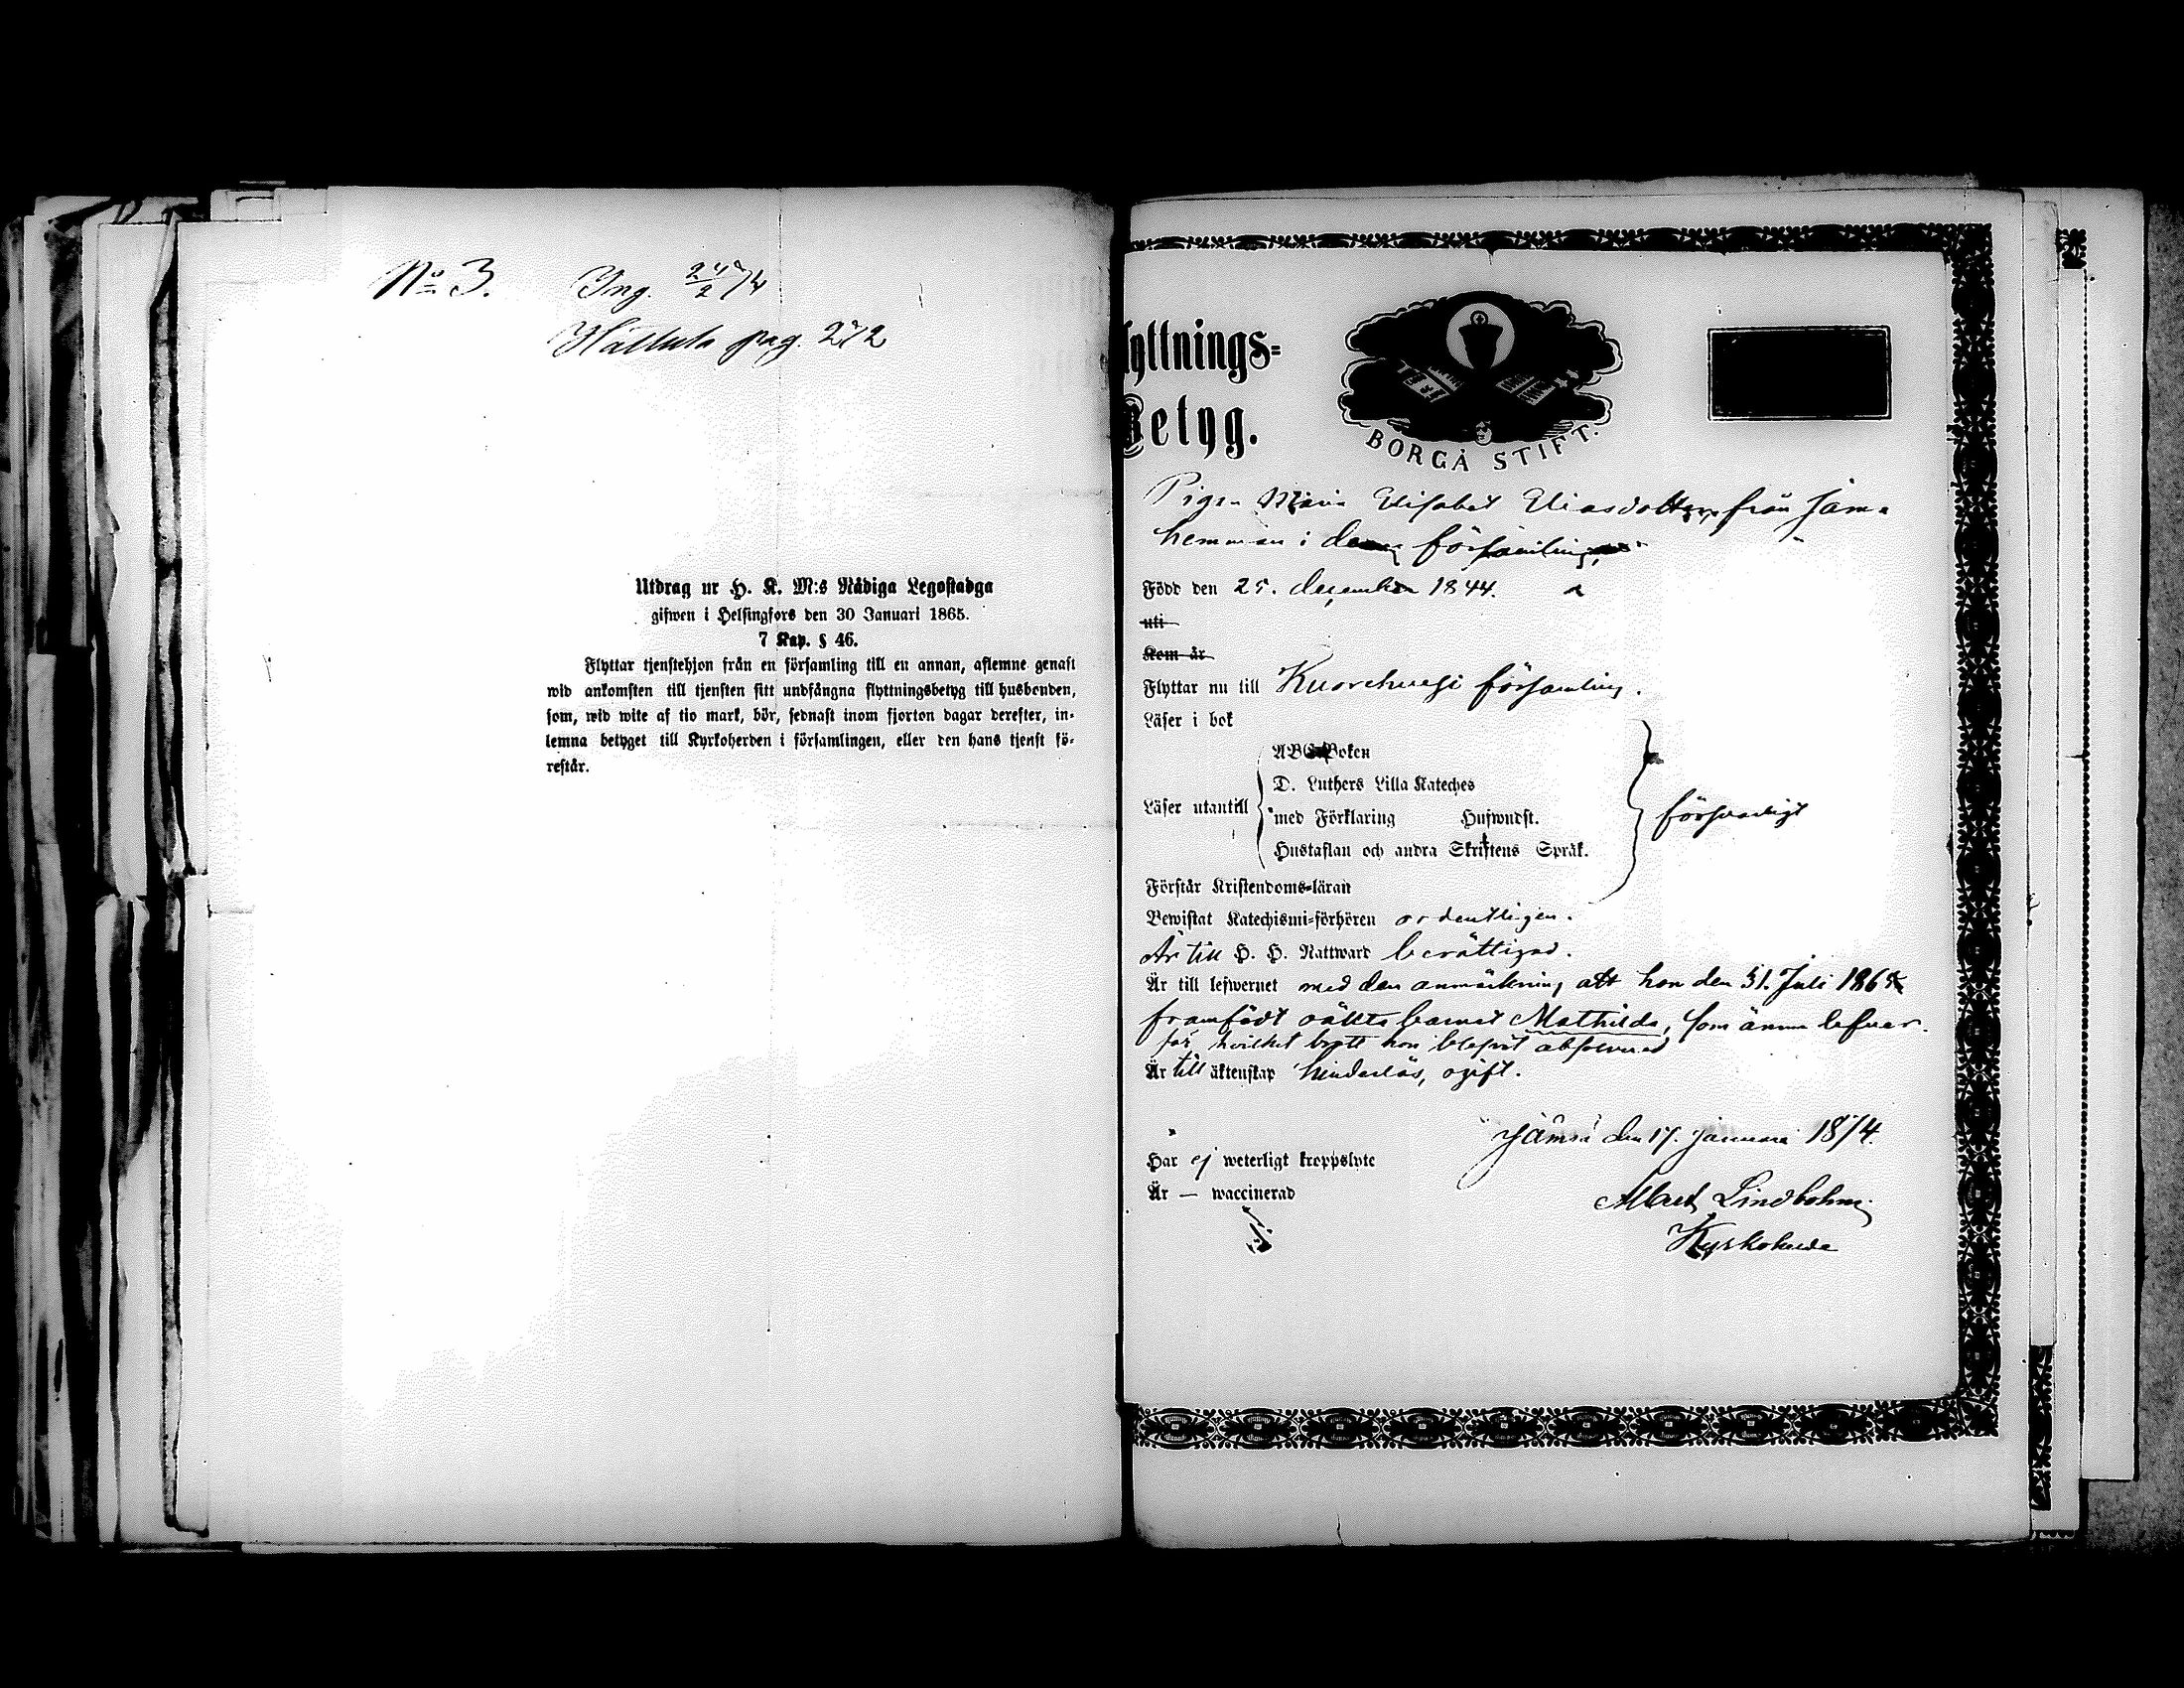 No 3. Ing. 24/2 74
Hällula pag. 272
Utdrag ur H. K. M:s Nådiga Legostadga
gifwen i Helsingfors den 30 Januari 1865.
7 Kap. § 46.
Flyttar tjenstehjon från en församling till en annan, aflemne genast
wid ankomsten till tjensten sitt undfångna flyttningsbetyg till husbonden,
som, wid wite af tio mark, bör, sednast inom fjorton dagar derefter, in-
lemna betyget till Kyrkoherden i församlingen, eller den hans tjenst fö-
restår.
lyttnings-
Betyg.
BORGÅ STIFT.
Pigan Maria Elisabet Eliasdotter från
hemman i denna församling
Född den 25. december 1844.
uti
Kom år
Flyttar nu till Kuorehvesi församling.
Läser i bok
ABC-Boken
D. Luthers Lilla Kateches
Läser utantill med Förklaring Hufwudst. försvarligt
Hustaflan och andra Skriftens Språk.
Förstår Kristendoms-läran
Bewistat Katechismi-förhören ordentligen.
Är till H. H. Nattward berättigad.
Är till lefwernet med den anmärkning att hon den 31. Juli
framfödt oäkta barnet Mathilda, som ännu lefver.
för hvilket brott hon blifvit absolverad
Är till äktenskap hinderlös, ogift.
Jämsä den 17. januari 1874.
Har ej weterligt kroppslyte
Är — waccinerad
Lindbohm
Kyrkoherde